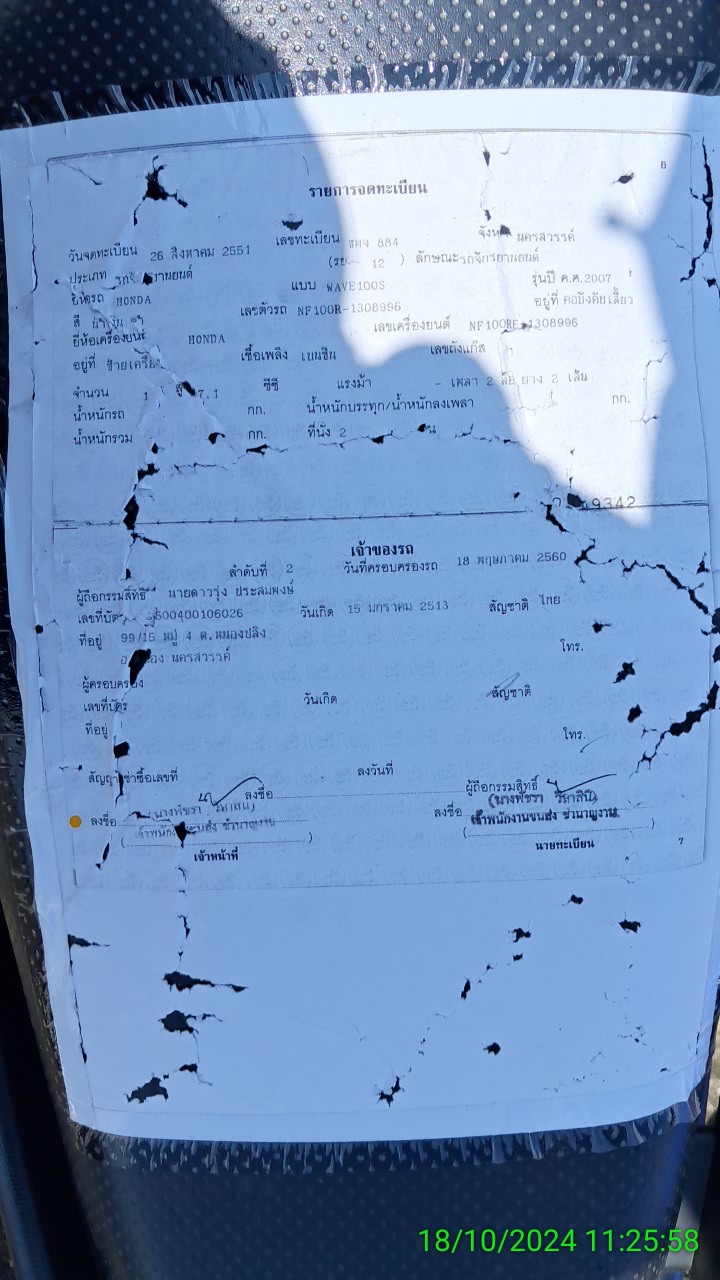 6
รายการจดทะเบียน
วันจดทะเบียน 26 สิงหาคม 2551 เลขทะเบียน 884 นครสวรรค์
ประเภท (รย. 12 ) ลักษณะ รถจักรยานยนต์
ยี่ห้อรถ HONDA แบบ WAVE100S รุ่นปี ค.ศ.2007
สี เลขตัวรถ NF100R-1308996 อยู่ที่ คอบังคับเลี้ยว
ยี่ห้อเครื่องยนต์ HONDA เลขเครื่องยนต์ NF100RE-1308996
อยู่ที่ เชื้อเพลิง เบนซิน เลขถังแก๊ส
จำนวน 1 ซีซี แรงม้า - เพลา 2 ล้อ ยาง 2 เส้น
น้ำหนักรถ กก. น้ำหนักบรรทุก/น้ำหนักลงเพลา กก.
น้ำหนักรวม กก. ที่นั่ง 2
9342
เจ้าของรถ
ลำดับที่ 2 วันที่ครอบครองรถ 18 พฤษภาคม 2560
ผู้ถือกรรมสิทธิ์ นายดาวรุ่ง ประสมพงษ์
เลขที่บัตร 600400106026 วันเกิด 15 มกราคม 2513 สัญชาติ ไทย
ที่อยู่ 99/15 หมู่ 4 ต.หนองปลิง
นครสวรรค์ โทร.
ผู้ครอบครอง
เลขที่บัตร วันเกิด สัญชาติ
ที่อยู่ โทร.
สัญญาเช่าซื้อเลขที่ ลงวันที่
ลงชื่อ ผู้ถือกรรมสิทธิ์
(นางพัชรา (นางพัชรา
ลงชื่อ ลงชื่อ เจ้าพนักงานขนส่ง ชำนาญงาน
เจ้าพนักงานขนส่ง ชำนาญงาน
เจ้าหน้าที่ นายทะเบียน 7
18/10/2024 11:25:58